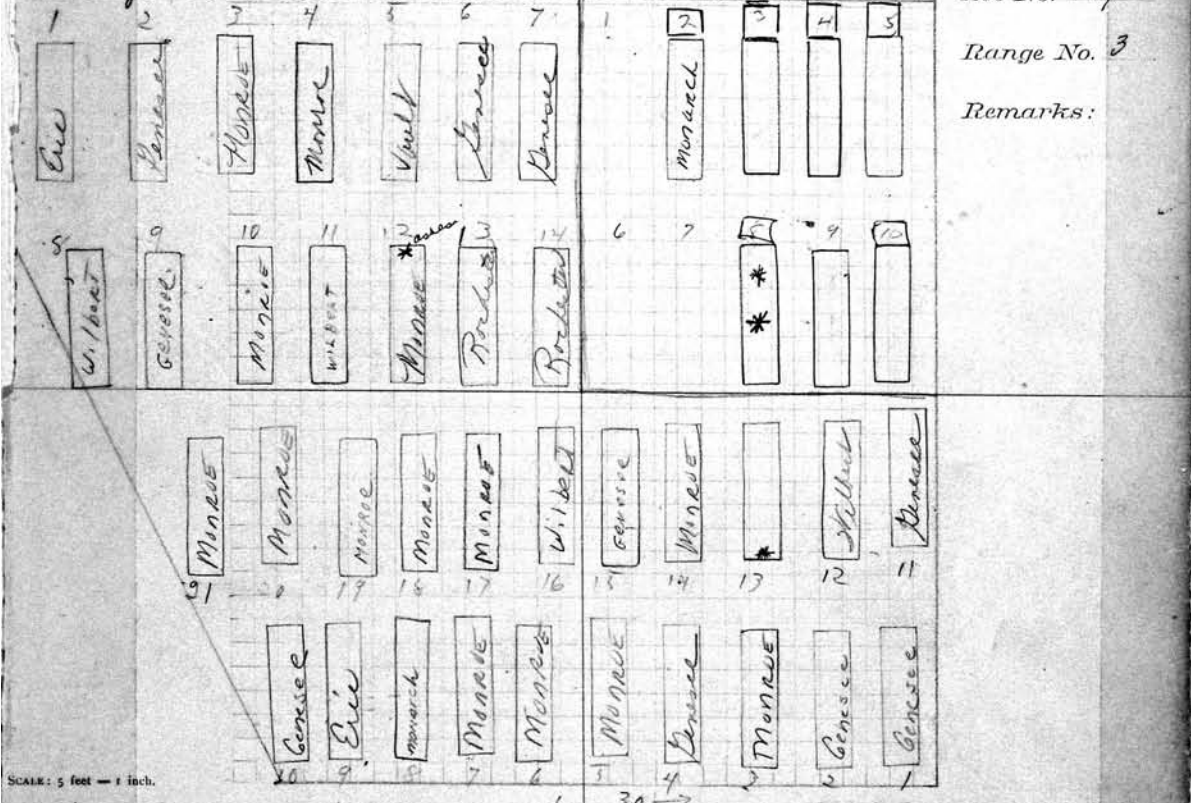 1 2 3 4 5 6 7 1 2 3 4 5
Range No. 3
Erie Genesee MONROE Monroe Vault Genesee Genesee Monarch
Remarks:
8 9 10 11 12 *ashes 13 14 6 7 8 9 10
Wilbert Genesee Monroe WILBERT MONROE Rochester Rochester * *
MONROE MONROE MONROE MONROE MONROE Wilbert Genesee MONROE * Wilbert Genesee
21 20 19 18 17 16 15 14 13 12 11
Genesee Erie monarch MONROE MONROE MONROE Genesee MONROE Genesee Genesee
10 9 8 7 6 5 4 3 2 1
SCALE: 5 feet — 1 inch.
30 →